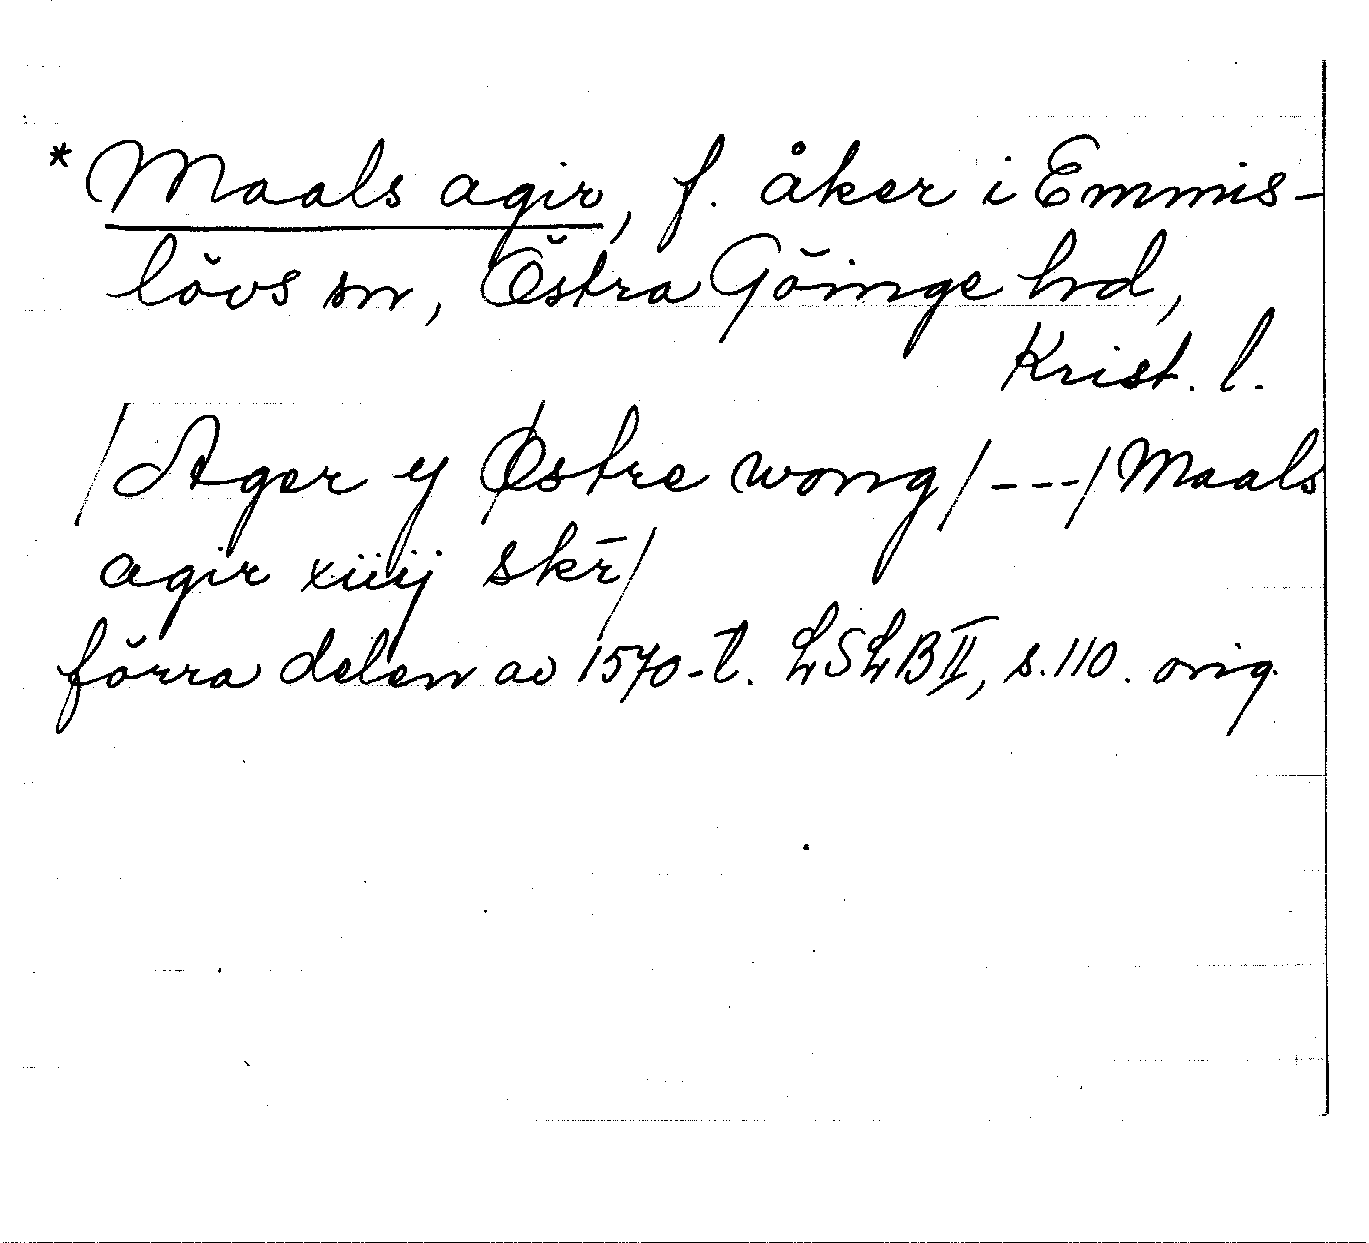 * Maals agir, f. åker i Emmis-
lövs sn, Östra Göinge hd,
Krist. l.
/Ager y Østre wong/---/Maals
agir xiiij skr̄/
förra delen av 1570-t. LSLB II, s. 110. orig.